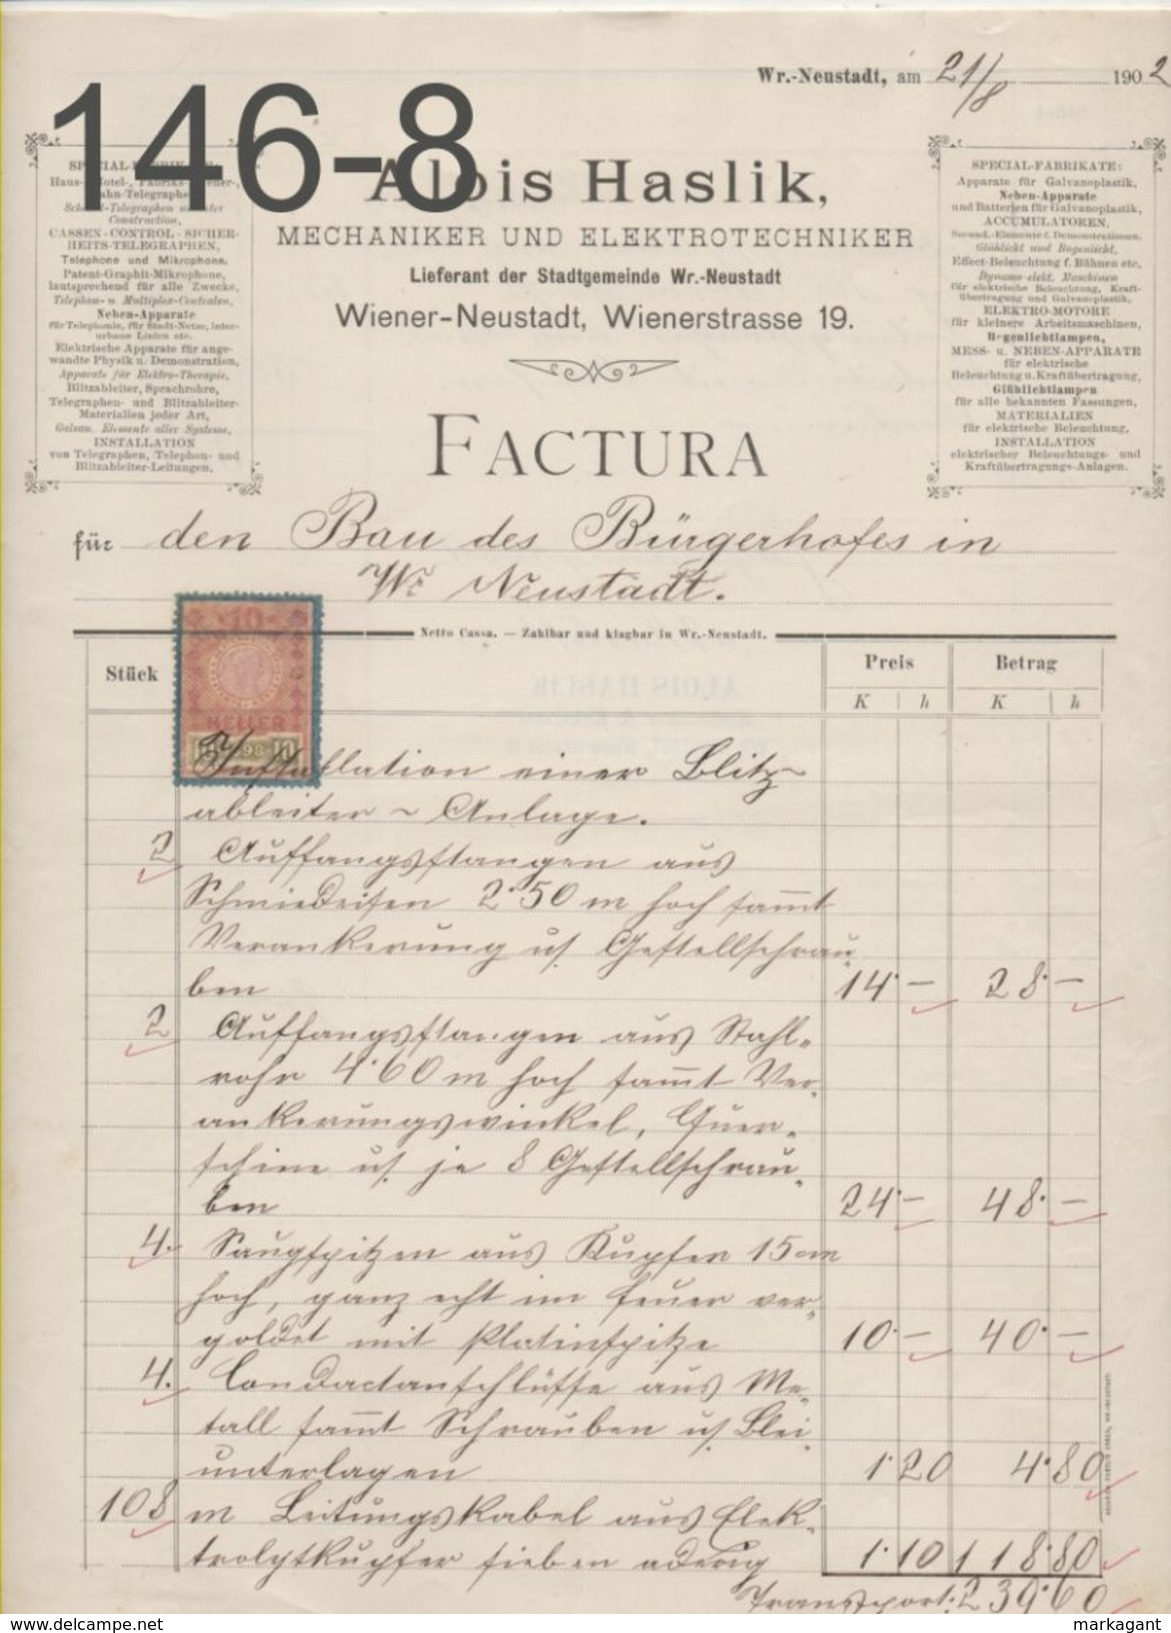 Wr.-Neustadt, am 21/8 1902
146-8
Alois Haslik,
MECHANIKER UND ELEKTROTECHNIKER
Lieferant der Stadtgemeinde Wr.-Neustadt
Wiener-Neustadt, Wienerstrasse 19.
SPECIAL-FABRIKATE:
Construction,
CASSEN-CONTROL-SICHER-
HEITS-TELEGRAPHEN,
Telephone und Mikrophone,
Patent-Graphit-Mikrophone,
lautsprechend für alle Zwecke,
Telephon- u. Multiplex-Centralen,
Neben-Apparate
für Telephonie, für Stadt-Netze, Inter-
urbane Linien etc.
Elektrische Apparate für ange-
wandte Physik u. Demonstration,
Apparate für Elektro-Therapie,
Blitzableiter, Sprachrohre,
Telegraphen- und Blitzableiter-
Materialien jeder Art,
Galvan. Elemente aller Systeme,
INSTALLATION
von Telegraphen, Telephon- und
Blitzableiter-Leitungen.
SPECIAL-FABRIKATE:
Apparate für Galvanoplastik,
Neben-Apparate
und Batterien für Galvanoplastik,
ACCUMULATOREN,
Secund.-Elemente f. Demonstrationen,
Glühlicht und Bogenlicht,
Effect-Beleuchtung f. Bühnen etc.
Dynamo-elekt. Maschinen
für elektrische Beleuchtung, Kraft-
übertragung und Galvanoplastik,
ELEKTRO-MOTORE
für kleinere Arbeitsmaschinen,
Bogenlichtlampen,
MESS- u. NEBEN-APPARATE
für elektrische
Beleuchtung u. Kraftübertragung,
Glühlichtlampen
für alle bekannten Fassungen,
MATERIALIEN
für elektrische Beleuchtung,
INSTALLATION
elektrischer Beleuchtungs- und
Kraftübertragungs-Anlagen.
FACTURA
für den Bau des Bürgerhofes in
Wr Neustadt.
Netto Cassa. — Zahlbar und klagbar in Wr.-Neustadt.
Stück Preis Betrag
K h K h
10
HELLER
10 1898 10
Installation einer Blitz-
ableiter - Anlage.
2 Auffangsstangen aus
Schmiedeisen 2·50 m hoch sammt
Verankerung u. Gestellschrau-
ben 14·— 28·—
2 Auffangsstangen aus Stahl-
rohr 4·60 m hoch sammt Ver-
ankerungswinkel, Quer-
schine u. je 8 Gestellschrau-
ben 24·— 48·—
4. Saugspitzen aus Kupfer 15 cm
hoch, ganz echt im Feuer ver-
goldet mit Platinspitze 10·— 40·—
4. Condactanschlüsse aus Me-
tall sammt Schrauben u. Blei-
unterlagen 1·20 4·80
108 m Leitungskabel aus Elek-
trolytkupfer sieben adrig 1·10 118·80
Transport: 239·60
www.delcampe.net
markagant